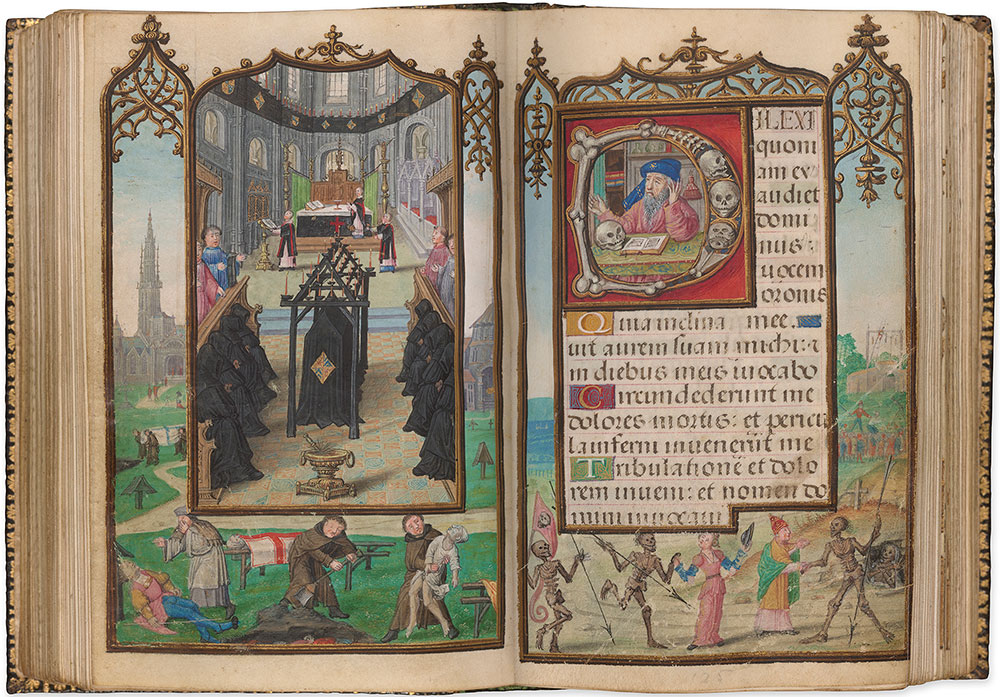 DILEXI
quoni
am ex
audiet
domi
nus:
uocem
oronis
Quia inclina mee.
uit aurem suam michi: ⁊
in diebus meis inuocabo
Circundederunt me
dolores mortis: et pericu
la inferni inuenerūt me
Tribulationē et dolo
rem inueni: et nomen do
mini inuocaui